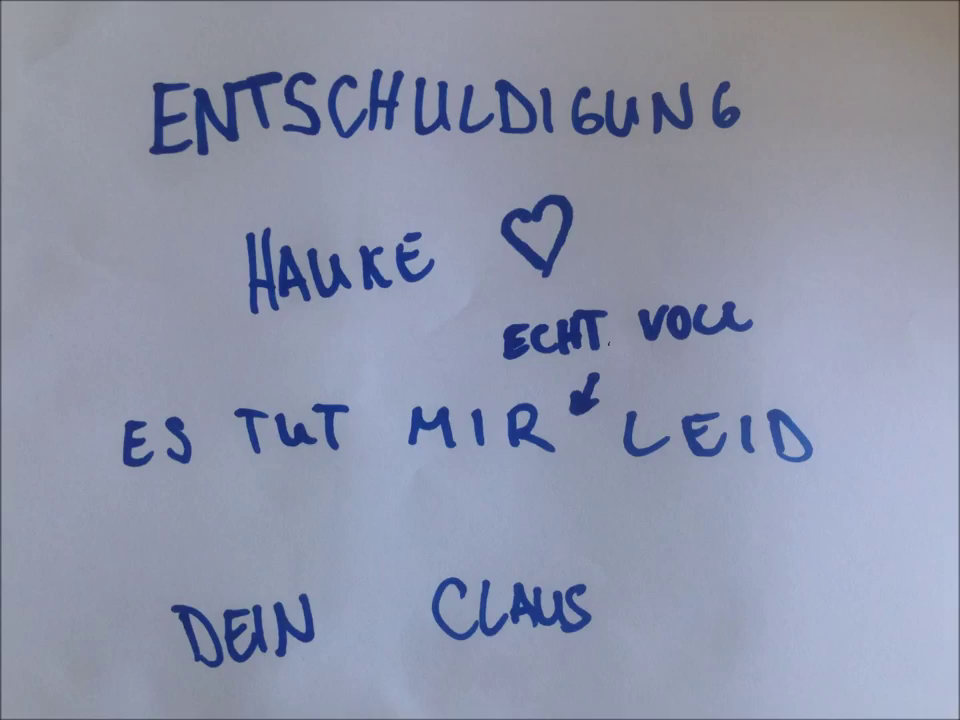 ENTSCHULDIGUNG
HAUKE ♡
ECHT VOLL
ES TUT MIR LEID
DEIN CLAUS